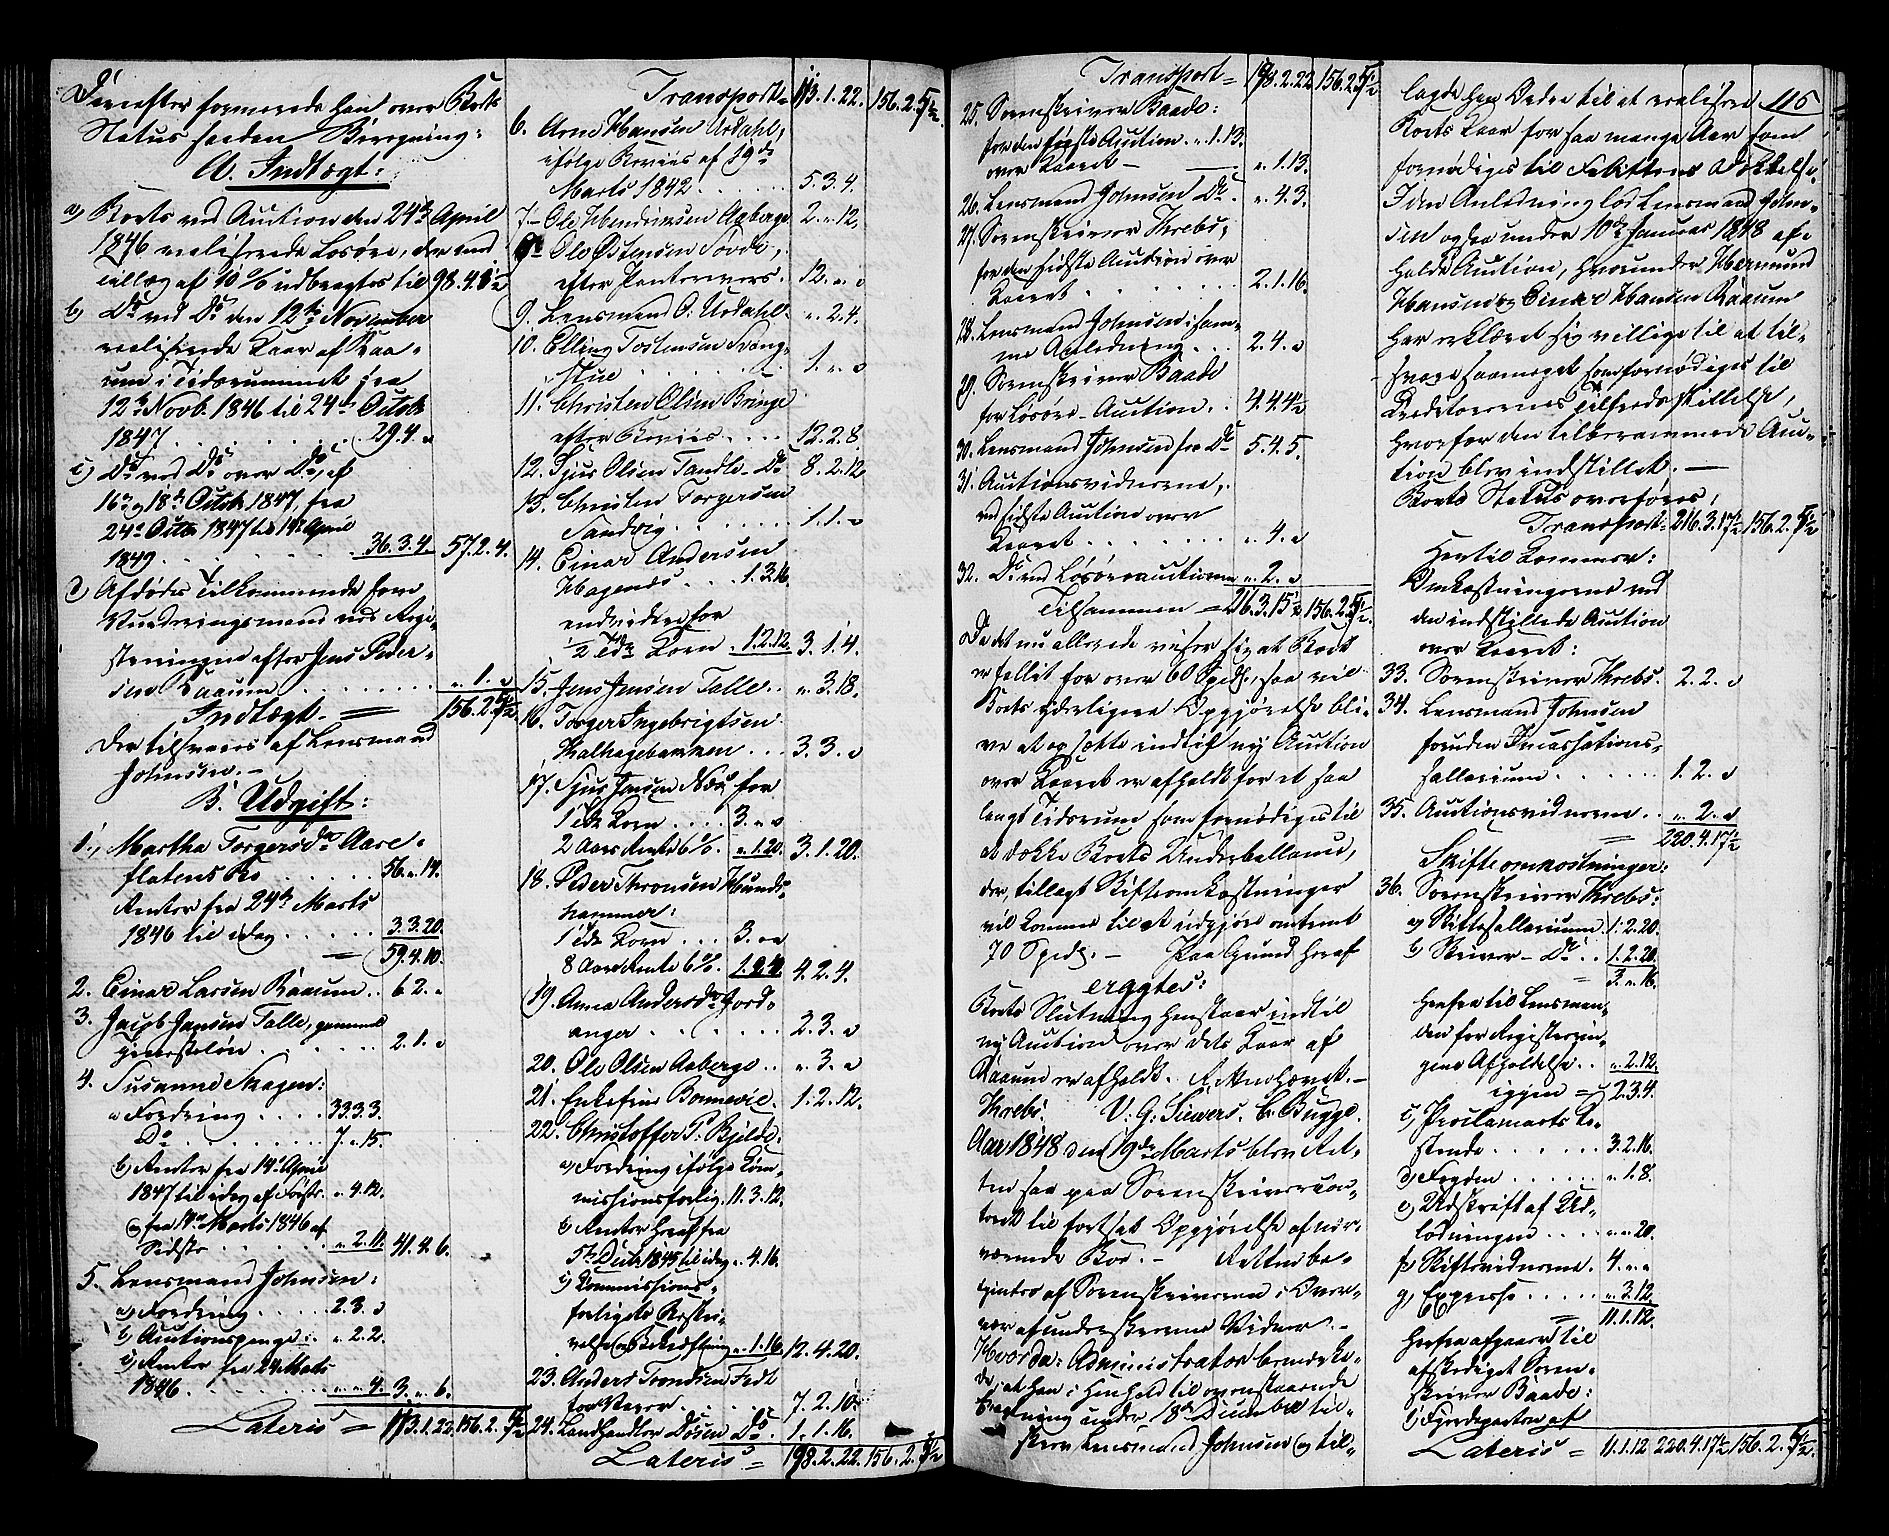 Derefter formerede han over Boets
Status saaden Beregning:
A. Indtægt:
a) Boets ved Auction den 24de April
1846 realiserede Løsøre, der med
Tillæg af 10 % udbragtes til 98.4.1½
b) Do ved Do den 12te November
realiserede Kaar af Kaa-
rum i Tidsrummet fra
12te Novb. 1846 til 24de Octob
1847 . . . . 29.4.„
c) Do ved Do over Do, af
16de og 18de Octob 1847, fra
24de Octb 1847 til 14de April
1849 . . . 36.3.4. 57.2.4.
d) Afdødes Tilkommende som
Vurderingsmand ved Regi-
streringen efter Jens Peder-
sen Kaarum . . . „.1.„
Indtægt = 156.2.5½
der tilsvares af Lensmand
Johnsen.–
B. Udgift:
1., Martha Torgersdr Aare-
flatens Bo . . . 56.„.14.
Renter fra 24de Marts
1846 til idag . . . 3.3.20.
= 59.4.10.
2. Einar Larsen Kaarum . . 6.2.„
3. Jacob Jansen Talle, gammel
Tjenesteløn . . . 2.1.„
4. Susanne Skagen:
a Fordring . . . 33.3.3.
Do . . . 7.„.15.
b) Renter fra 14de April
1847 til idag af Første „.4.12.
og fra 14de Marts 1846 af
Sidste . . . „.2.11. 41.4.6.
5. Lensmand Johnsen:
a) Fordring . . . 2.3.„
b) Auctionspenge . „.2.2.
c) Renter fra 24 Marts
1846 . . . „.„.4. 3.„.6.
Lateris = 113.1.22. 156.2.5½
Transport = 113.1.22. 156.2.5½
6. Arne Hansen Urdahl,
ifølge Beviis af 19de
Marts 1842 . . . 5.3.4.
7– Ole Hendriksen Aaberge 2.„.12.
8. Ole Østensen Sørde,
efter Panterevers . 12.„.„
9. Lensmand O. Urdahl. „.2.4.
10. Elling Tostensen Svang-
stue . . . 1.„.„
11. Christen Olsen Bringe
efter Beviis . . . 12.2.8.
12. Sjur Olsen Tandle – Do 8.2.12
13. Christen Torgersen
Sandvig . . . 1.1.„
14. Einar Andersen
Hagenæs . . . 1.3.16.
endvidere for
½ Tde Korn . 1.2.12. 3.1.4.
15. Jens Jensen Talle . . „.3.18.
16. Torger Ingebrigtsen
Kalhagebakken . . . 3.3.„
17. Sjur Jensen Næs for
1 Tde Korn . . . 3.„.„
2 Aars Rente 6 % . „.1.20. 3.1.20.
18. Peder Thronsen Hunds-
hammer:
1 Tde Korn . . . 3.„.„
8 Aars Rente 6 % . 1.2.4. 4.2.4.
19. Anna Andersdr Fjord-
anger . . . 2.3.„
20. Ole Olsen Aaberge . . „.3.„
21. Enkefrue Bonnevie . 1.2.12.
22. Christoffer P. Bjelde:
a) Fordring ifølge Com-
missionsforlig . 11.3.12.
b) Renter heraf fra
5te Decbr 1845 til idag „.4.16.
c) Commissions-
forligets Beskri-
velse og Bekræftning „.1.16. 12.4.20.
23. Anders Trondsen Fedt
for Varer . . . 7.2.10.
24. Landhandler Døsen Do . 1.1.16.
Lateris = 198.2.22. 156.2.5½
Transport = 198.2.22 156.2.5½
25. Sorenskriver Baade:
for den første Auction „.1.13.
over Kaaret – „.1.13.
26. Lensmand Johnsen Do . „.4.3.
27. Sorenskriver Krebs,
for den sidste Auction over
Kaaret . . . 2.1.16.
28. Lensmand Johnsen i sam-
me Anledning . . . 2.4.„
29. Sorenskriver Baade
for Løsøre-Auction . . 4.4.4½
30. Lensmand Johnsen for Do – 5.4.5.
31. Auctionsvidnerne,
ved sidste Auction over
Kaaret . . . „.4.„
32. Do ved Løsøreauctionen „.2.„
Tilsammen = 216.3.15½ 156.2.5½
Da det nu allerede viser sig at Boet
er fallit for over 60 Spd, saa vil
Boets yderligere Opgjørelse bli-
ve at opsætte indtil ny Auction
over Kaaret er afholdt for et saa
langt Tidsrum som fornødiges til
at dække Boets Underballance,
der, tillagt Skifteomkostninger
vil komme til at udgjøre omtrent
70 Spd. – Paa Grund heraf
eragtes:
Boets Slutning henstaar indtil
ny Auction over dets Kaar af
Kaarum er afholdt. Retten hævet.–
Krebs. V. G. Siewers. C. Bugge.
Aar 1848 den 19de Marts blev Ret-
ten sat paa Sorenskrivercon-
toret til fortsat Opgjørelse af nær-
værende Bo. – Retten be-
tjentes af Sorenskriveren i Over-
vær af underskrevne Vidner. –
Hvorda: Administrator bemærke-
de, at han i Henhold til ovenstaaende
Eragtning under 18de December til-
skrev Lensmand Johnsen og til-
115
lagde ham Ordre til at realisere
Boets Kaar for saa mange Aar som
fornødiges til Fallittens Dækkelse.
I den Anledning lod Lensmand John-
sen ogsaa under 10de Januar 1848 af-
holde Auction, hvorunder Hermund
Hansen og Einar Hansen Kaarum
har erklæret sig villige til at til-
svare saameget som fornødiges til
Creditorernes Tilfredsstillelse,
hvorfor den tilberammede Auc-
tion blev indstillet. –
Boets Status overføres,
Transport = 216.3.17½ 156.2.5½
Hertil kommer:
Omkostningerne ved
den indstillede Auction
over Kaaret:
33. Sorenskriver Krebs . 2.2.„
34. Lensmand Johnsen
foruden Incassations-
sallarium . . . 1.2.„
35. Auctionsvidnerne . . „.2.„
= 220.4.17½
Skifteomkostninger:
36. Sorenskriver Krebs:
a) Skiftesallarium . 1.2.20.
b) Skriver – Do . . 1.2.20.
= 3.„.16.
herfra til Lensman-
den for Registerin-
gens Afholdelse . . „.2.12.
igjen = 2.3.4.
c) Proclamaets Be-
kostende . . . 3.2.16.
d) Fogden . . . „.1.8.
e) Udskrift af Ud-
lodningen . . . „.„.20.
f) Skiftevidnerne . 4.„.„
g) Expresse . . . „.3.12.
= 11.1.12.
herfra afgaaer til
afskediget Soren-
skriver Baade:
1) Fjerdeparten af
Lateris = 11.1.12 220.4.17½ 156.2.5½